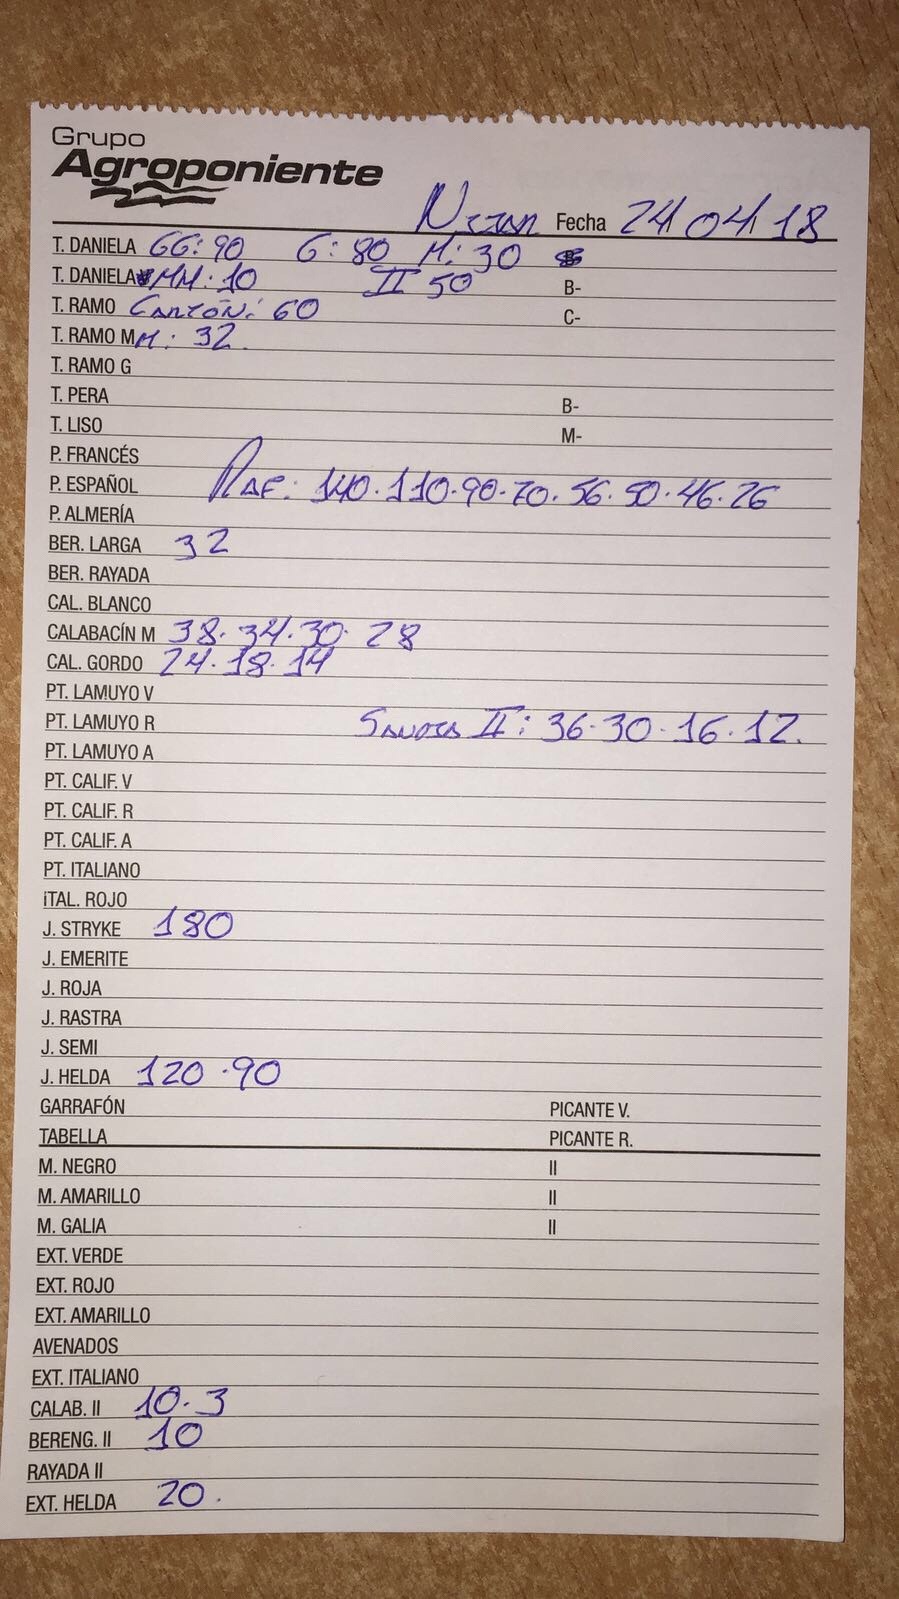 Grupo
Agroponiente
Nijar Fecha 24 04 18
T. DANIELA GG: 90 G: 80 M: 30
T. DANIELA MM: 10 II 50 B-
T. RAMO Cartón: 60 C-
T. RAMO M M: 32.
T. RAMO G
T. PERA B-
T. LISO M-
P. FRANCÉS
P. ESPAÑOL Raf: 140.110.90.70.56.50.46.26
P. ALMERÍA
BER. LARGA 32
BER. RAYADA
CAL. BLANCO
CALABACÍN M 38.34.30.28
CAL. GORDO 24.18.14
PT. LAMUYO V
PT. LAMUYO R Sandia II: 36.30.16.12.
PT. LAMUYO A
PT. CALIF. V
PT. CALIF. R
PT. CALIF. A
PT. ITALIANO
iTAL. ROJO
J. STRYKE 180
J. EMERITE
J. ROJA
J. RASTRA
J. SEMI
J. HELDA 120.90
GARRAFÓN PICANTE V.
TABELLA PICANTE R.
M. NEGRO II
M. AMARILLO II
M. GALIA II
EXT. VERDE
EXT. ROJO
EXT. AMARILLO
AVENADOS
EXT. ITALIANO
CALAB. II 10.3
BERENG. II 10
RAYADA II
EXT. HELDA 20.